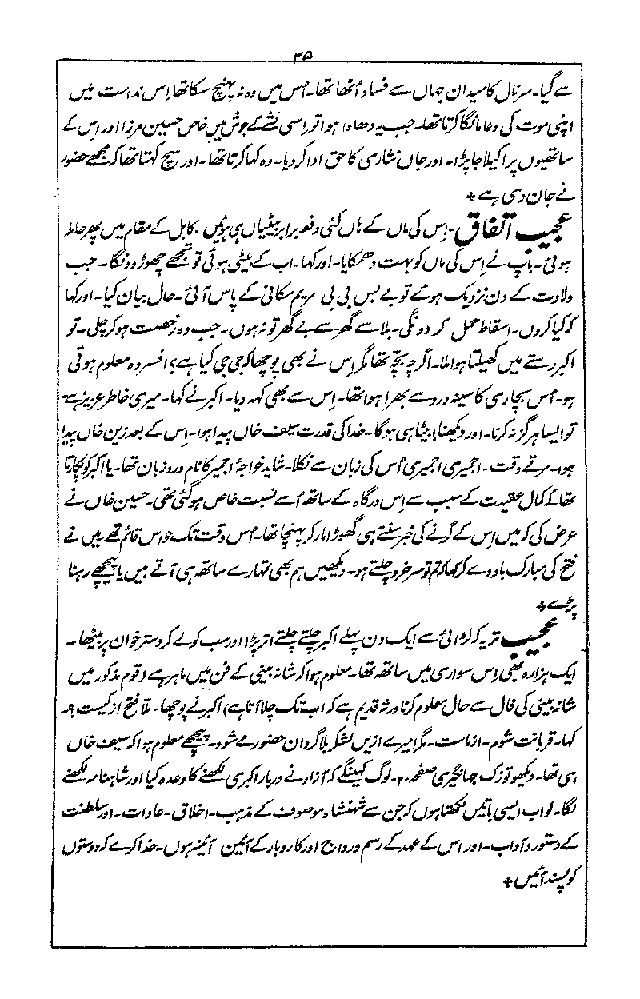 ۳۵
سے گیا۔ سرنال کا میدان جہاں سے فساد اُٹھا تھا۔ اُس میں وہ نہ پہنچ سکا تھا اِس ندامت میں
اپنی موت کی دعا مانگا کرتا تھا۔ جب یہ دھاوا ہوا تو اِسی نشے کے جوش میں خاص حسین مرزا اور اس کے
ساتھیوں پر اکیلا جا پڑا۔ اور جاں نثاری کا حق ادا کر دیا۔ وہ کہا کرتا تھا۔ اور سچ کہتا تھا کہ مجھے حضور
نے جان دی ہے *
عجیب اتفاق۔ اِس کی ماں کے ہاں کئی دفعہ برابر بیٹیاں ہی ہوئیں کابل کے مقام میں پھر حاملہ
ہوئی۔ باپ نے اِس کی ماں کو بہت دھمکایا۔ اور کہا۔ اب کے بیٹی ہوئی تو تجھے چھوڑ دونگا۔ جب
ولادت کے دن نزدیک ہوئے تو بے بس بی بی مریم مکانی کے پاس آئی۔ حال بیان کیا۔ اور کہا
کہ کیا کروں۔ اسقاط حمل کر دونگی۔ بلا سے گھر سے بے گھر تو نہ ہوں۔ جب وہ رخصت ہو کر چلی۔ تو
اکبر رستے میں کھیلتا ہوا ملا۔ اگرچہ بچہ تھا مگر اِس نے بھی پوچھا کہ جی جی کیا ہے؟ افسردہ معلوم ہوتی
ہو۔ اُس بیچاری کا سینہ درد سے بھرا ہوا تھا۔ اِس سے بھی کہہ دیا۔ اکبر نے کہا۔ میری خاطر عزیز ہے
تو ایسا ہرگز نہ کرنا۔ اور دیکھنا بیٹا ہی ہوگا۔ خدا کی قدرت سیف خاں پیدا ہوا۔ اس کے بعد زین خاں پیدا
ہوا۔ مرتے وقت۔ اجمیری اجمیری اُس کی زبان سے نکلا۔ شاید خواجۂ اجمیر کا نام ورد زبان تھا۔ یا اکبر کو پکارتا
تھا کہ کمال عقیدت کے سبب سے اِس درگاہ کے ساتھ اُسے نسبت خاص ہو گئی تھی۔ حسین خاں نے
عرض کی کہ میں اِس کے گرنے کی خبر سنتے ہی گھوڑا مار کر پہنچا تھا۔ اُس وقت تک حواس قائم تھے میں نے
فتح کی مبارک باد دے کر کہا کہ تم تو سرخرو چلتے ہو۔ دیکھیں ہم بھی تمہارے ساتھ ہی آتے ہیں یا پیچھے رہنا
پڑے *
عجیب تر یہ کہ لڑائی سے ایک دن پہلے اکبر چلتے چلتے اتر پڑا اور سب کو لے کر دسترخوان پر بیٹھا۔
ایک ہزارہ بھی اِس سواری میں ساتھ تھا۔ معلوم ہوا کہ شانہ بینی کے فن میں ماہر ہے (قوم مذکور میں
شانہ بینی کی فال سے حال معلوم کرنا ورثہ قدیم ہے کہ اب تک چلا آتا ہے) اکبر نے پوچھا۔ ملّا فتح از کیست؟
کہا۔ قربانت شوم۔ از ماست۔ مگر امیرے ازیں لشکر بلا گردان حضور مے شود۔ پیچھے معلوم ہوا کہ سیف خاں
ہی تھا۔ دیکھو توزک جہانگیری صفحہ ۲۰۔ لوگ کہینگے کہ آزاد نے دربار اکبری لکھنے کا وعدہ کیا اور شاہنامہ لکھنے
لگا۔ لو اب ایسی باتیں لکھتا ہوں کہ جن سے شہنشاہ موصوف کے مذہب۔ اخلاق۔ عادات۔ اور سلطنت
کے دستور و آداب۔ اور اس کے عہد کے رسم و رواج اور کاروبار کے آئین آئینہ ہوں۔ خدا کرے کہ دوستوں
کو پسند آئیں *